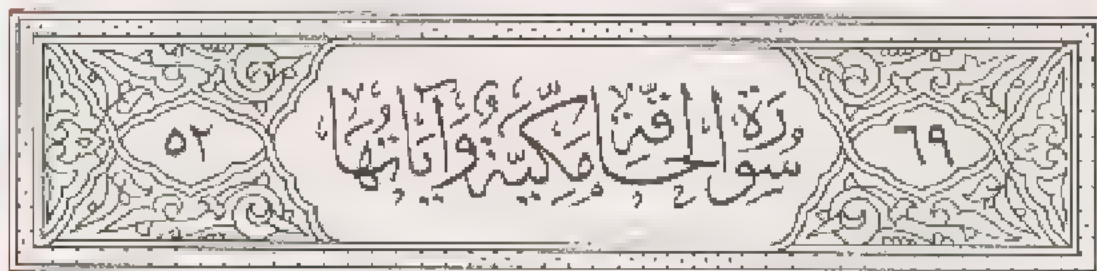 ٦٩ سُورَةُ الحَاقَّةِ مَكِّيَّةٌ وَآيَاتُهَا ٥٢